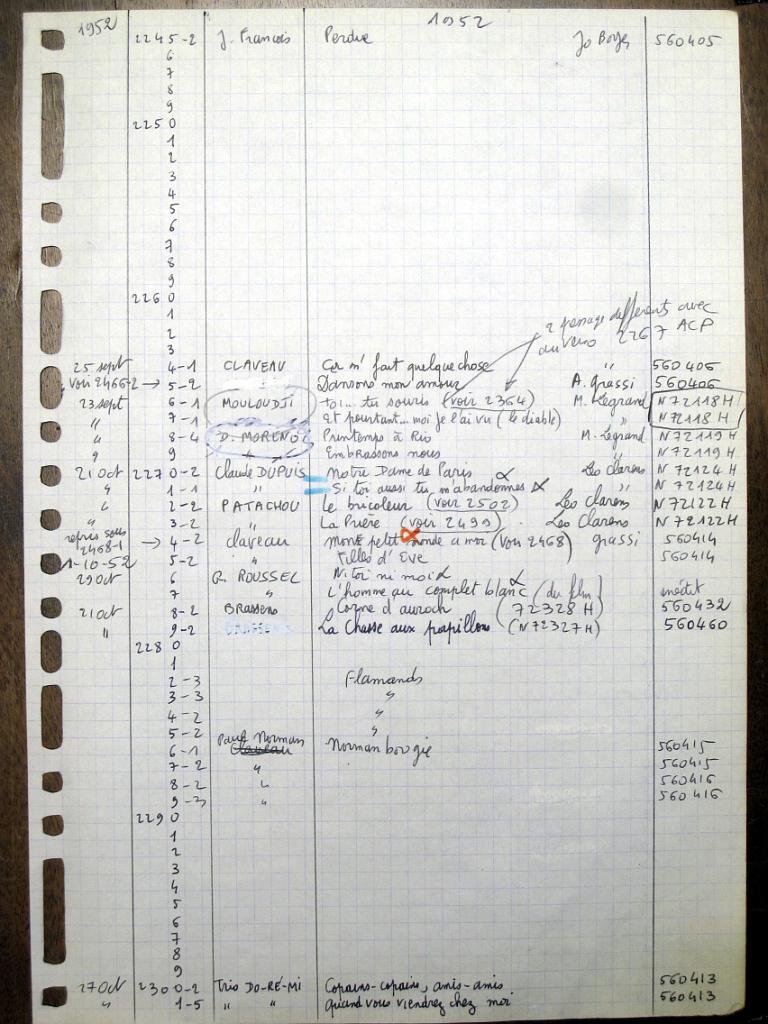 1952 1952
2245-2 J. Francois Perdue Jo Boyer 560405
6
7
8
9
2250
1
2
3
4
5
6
7
8
9
2260
1
2 2 pressage différents avec
3 au verso 2267 ACP
25 sept 4-1 CLAVEAU Ça m'fait quelque chose " 560406
voir 2466-2 → 5-2 Dansons mon amour A. Grassi 560406
23 sept 6-1 MOULOUDJI toi... tu souris (voir 2364) M. Legrand N72118H
" 7-1 " Et pourtant... moi je l'ai vu (le diable) " N72118H
" 8-4 D. MORENO Printemps à Rio M. Legrand N72119H
" 9 " " Embrassons nous N72119H
21 Oct 2270-2 Claude DUPUIS Notre Dame de Paris α Léo Clarens N72124H
" 1-1 " Si toi aussi tu m'abandonnes α N72124H
" 2-2 PATACHOU Le bricoleur (voir 2502) Léo Clarens N72122H
" 3-2 " La Prière (voir 2499) Léo Clarens N72122H
repris sous
2468-1 → 4-2 Claveau Mon petit monde a moi (voir 2468) grassi 560414
1-10-52 5-2 " Filles d'Eve 560414
29 Oct 6 R. ROUSSEL Ni toi ni moi α
7 " L'homme au complet blanc α (du film) inédit
21 Oct 8-2 Brassens Corne d'auroch (72328H) 560432
" 9-2 BRASSENS La Chasse aux papillons (N72327H) 560460
2280
1
2-3 Flamands
3-3 "
4-2 "
5-2 "
6-1 Paul Norman Claveau Norman boogie 560415
7-2 " 560415
8-2 " 560416
9-3 " 560416
2290
1
2
3
4
5
6
7
8
9
27 Oct 2300-2 Trio DO-RÉ-MI Copains-copains, amis-amis 560413
" 1-5 " " Quand vous viendrez chez moi 560413